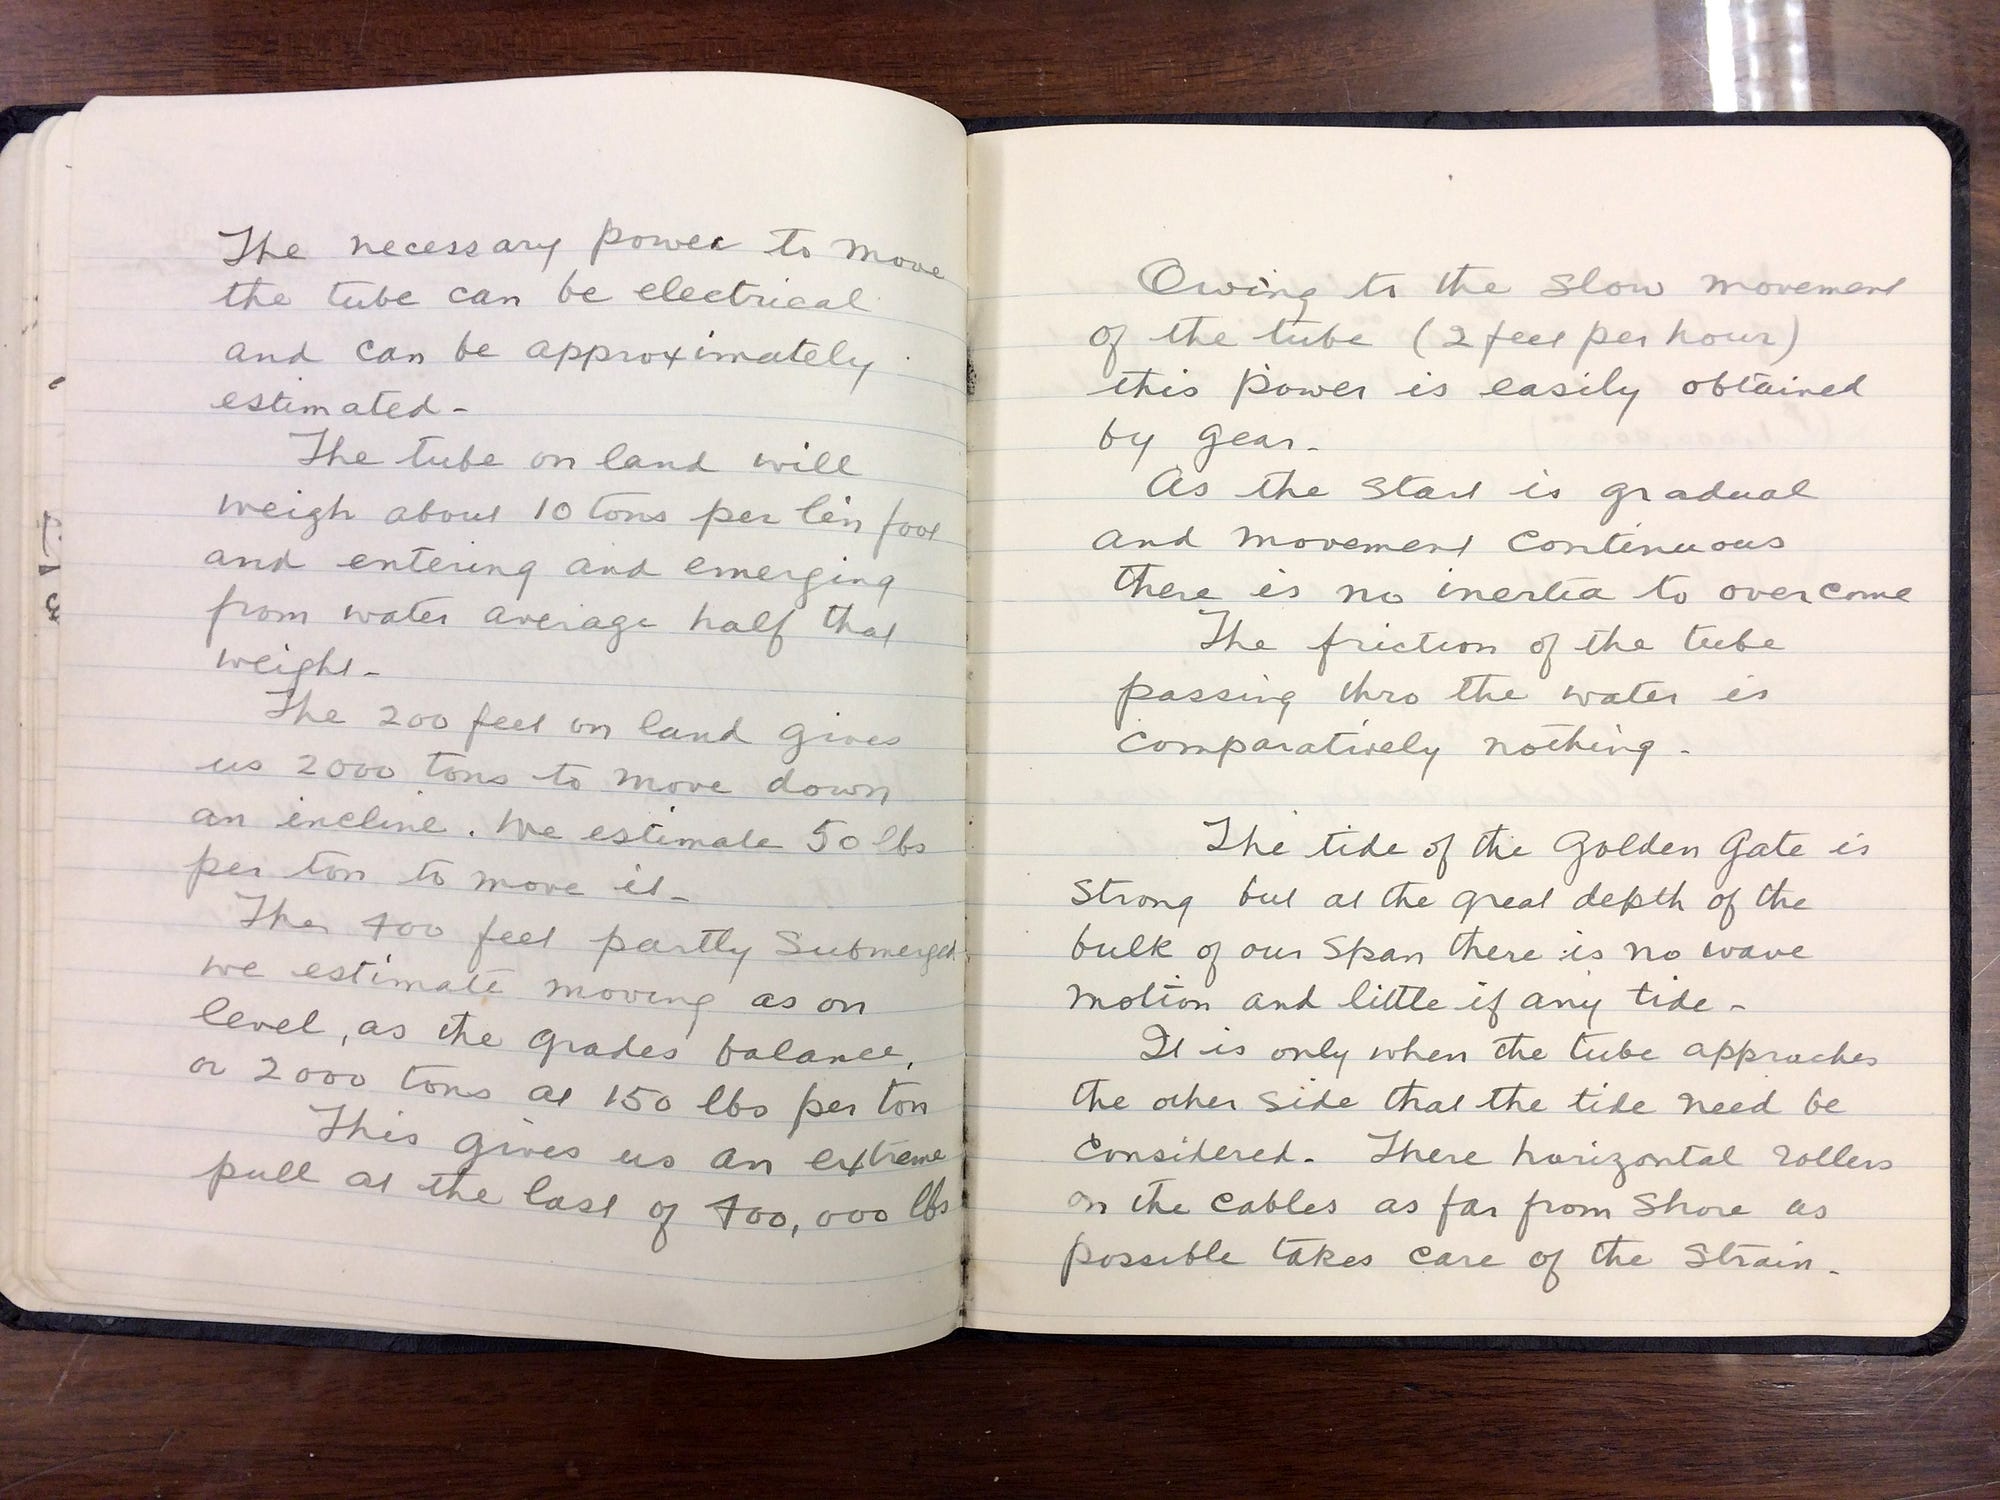 The necessary power to move
the tube can be electrical
and can be approximately
estimated-
The tube on land will
weigh about 10 tons per lin foot
and entering and emerging
from water average half that
weight-
The 200 feet on land gives
us 2000 tons to move down
an incline. We estimate 50 lbs
per ton to move it-
The 400 feet partly submerged
we estimate moving as on
level, as the grades balance,
or 2000 tons at 150 lbs per ton
This gives us an extreme
pull at the last of 400,000 lbs
Owing to the slow movement
of the tube (2 feet per hour)
this power is easily obtained
by gear-
As the start is gradual
and movement continuous
there is no inertia to overcome
The friction of the tube
passing thro the water is
comparatively nothing-
The tide of the Golden Gate is
strong but at the great depth of the
bulk of our span there is no wave
motion and little if any tide-
It is only when the tube approches
the other side that the tide need be
considered- There horizontal rollers
on the cables as far from shore as
possible takes care of the strain-